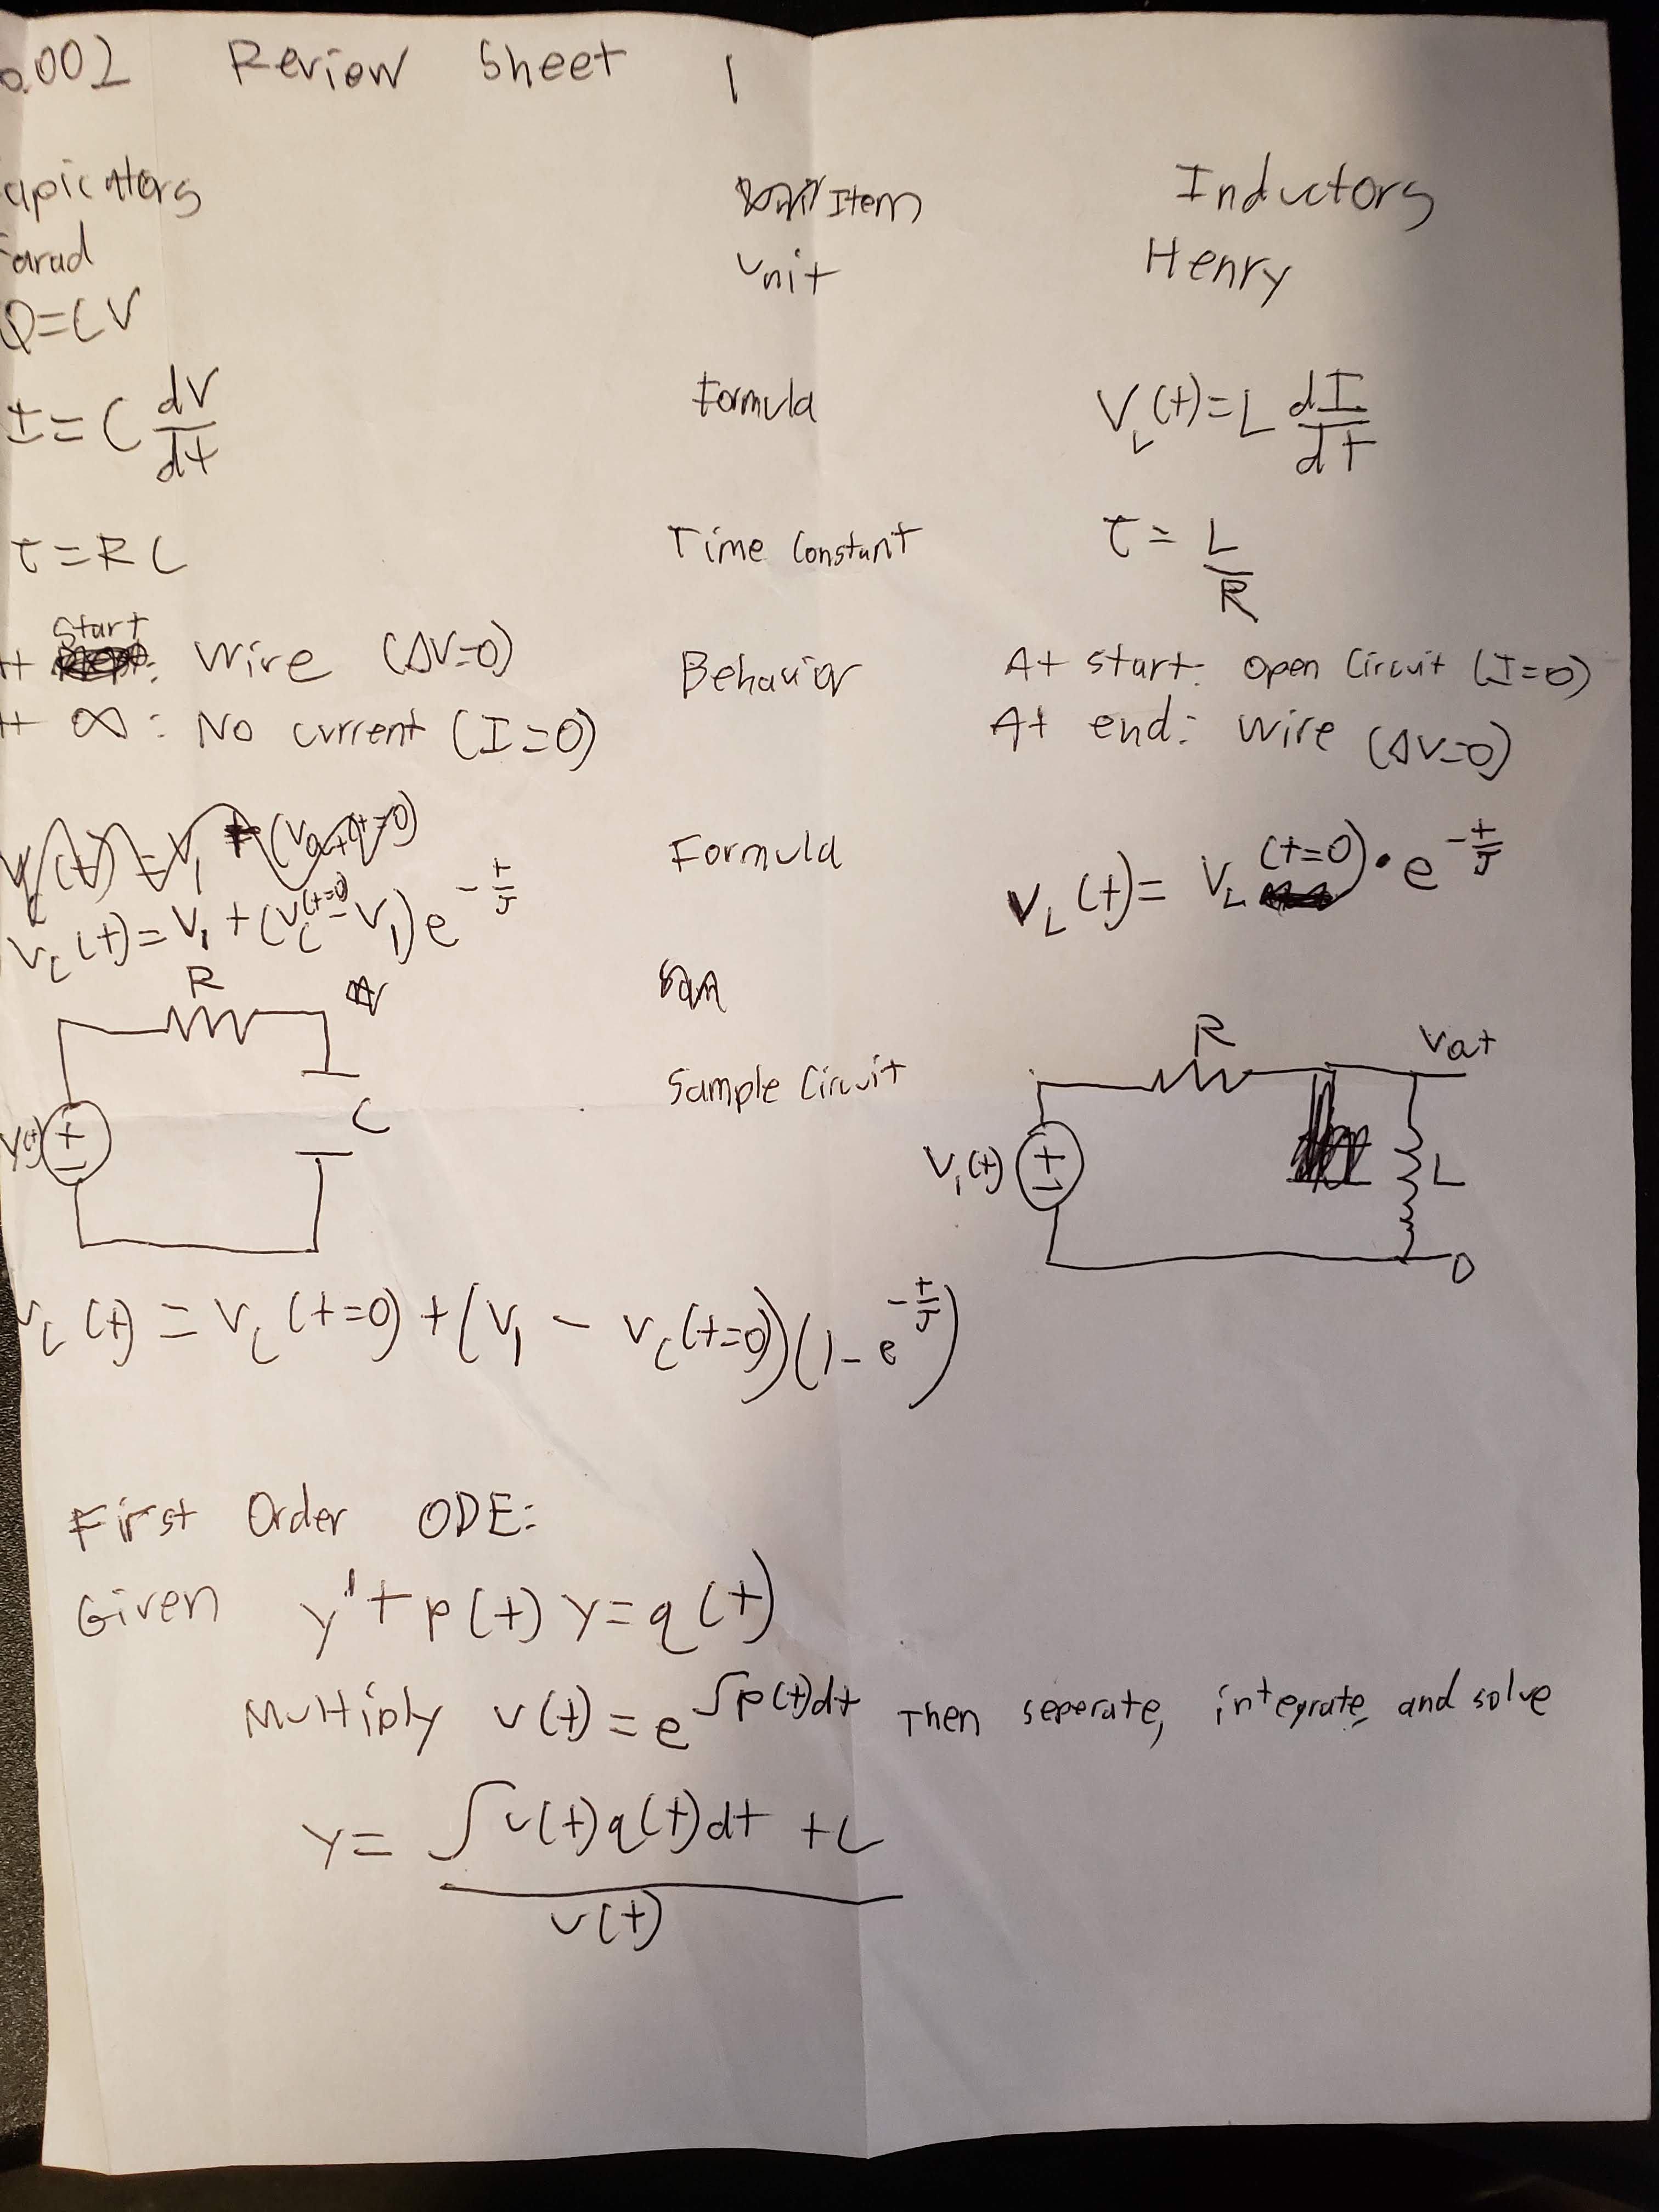 6.002 Review Sheet 1
apicators Item Inductors
Farad Unit Henry
Q=CV
I=C dV/dt Formula V_L(t)=L dI/dt
τ=RC Time Constant τ=L/R
At Start: Wire (ΔV=0) Behavior At start: Open Circuit (I=0)
At ∞: No current (I=0) At end: Wire (ΔV=0)
V_C(t)=V_1+(V_C(t=0)-V_1)e^{-t/τ} Formula V_L(t)=V_L(t=0)•e^{-t/τ}
R
C
V(t)
+
-
Sample Circuit
R
Vat
V_1(t)
+
-
L
0
V_C(t)=V_C(t=0)+(V_1-V_C(t=0))(1-e^{-t/τ})
First Order ODE:
Given y'+p(t)y=q(t)
Multiply v(t)=e^{∫p(t)dt} Then seperate, integrate, and solve
y=(∫v(t)q(t)dt+C)/v(t)